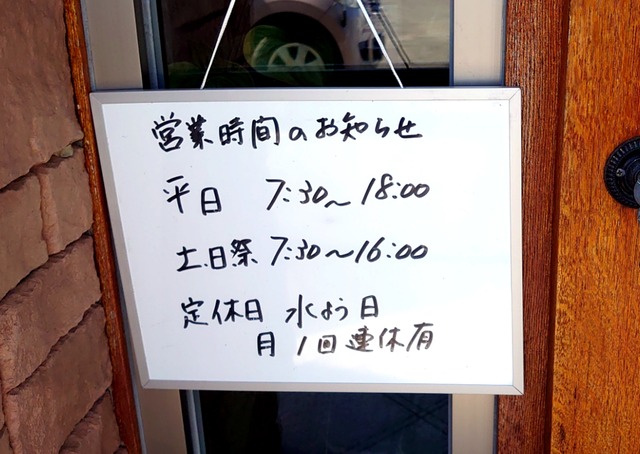 営業時間のお知らせ
平日 7:30〜18:00
土.日祭 7:30〜16:00
定休日 水よう日
月1回連休有